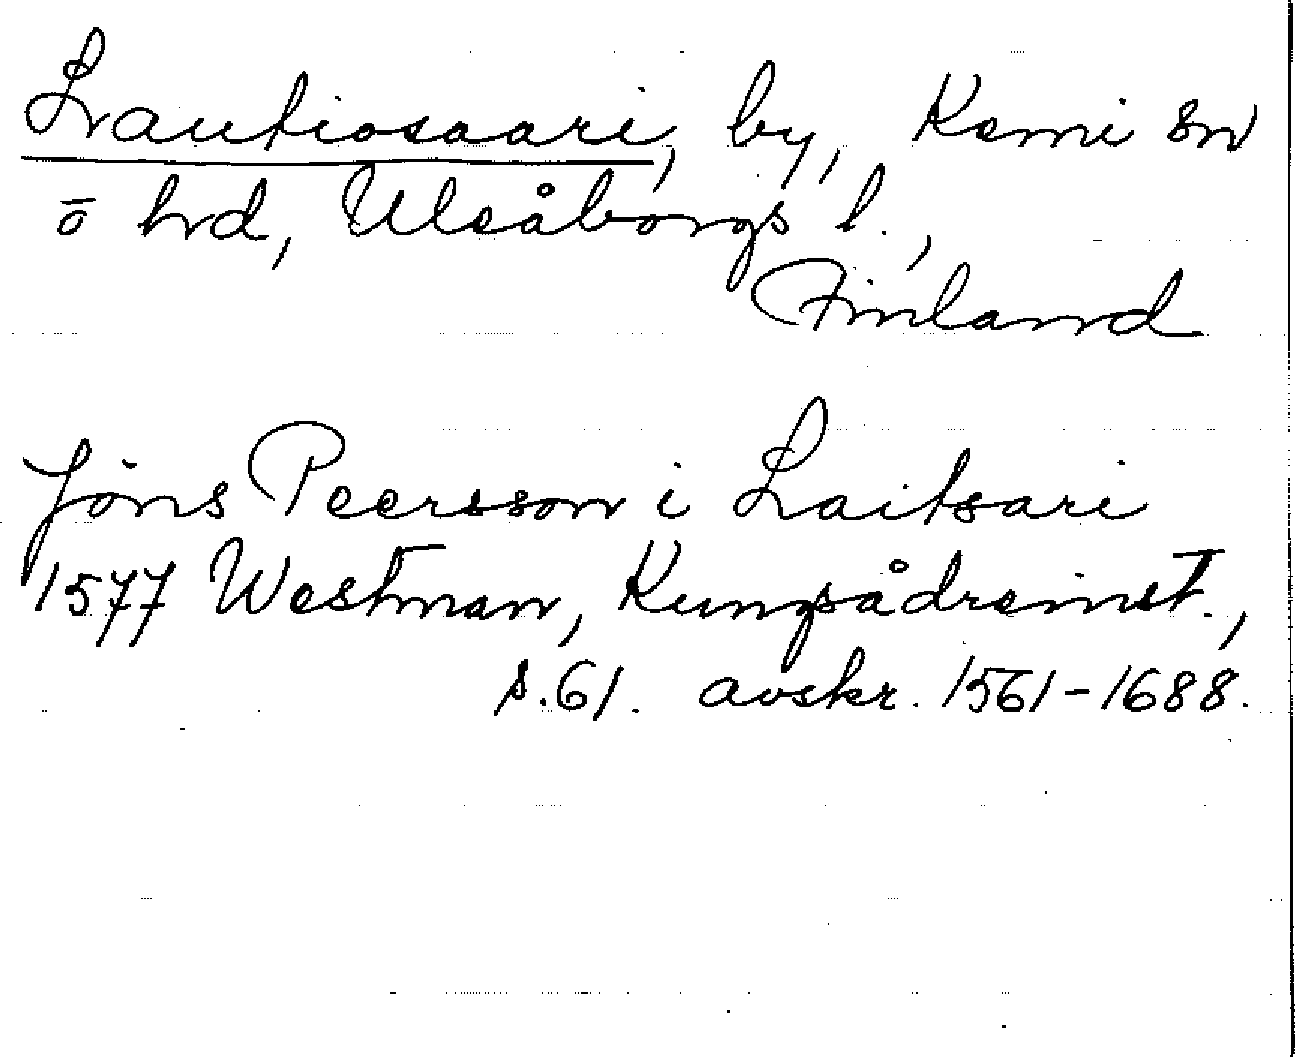 Lautiosaari, by, Kemi sn
o hrd, Uleåborgs l.,
Finland
Jöns Peersson i Laitsari
1577 Westman, Kungsådreinst.,
s. 61. avskr. 1561-1688.